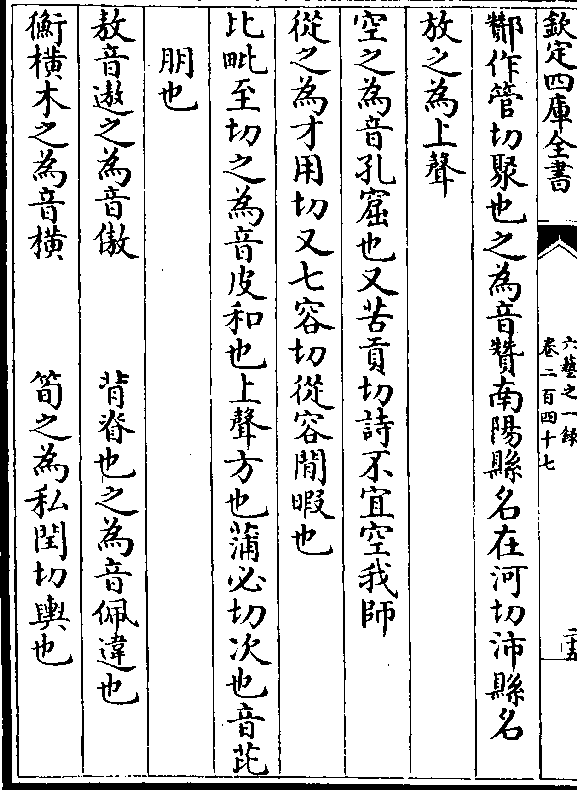 欽定四庫全書
六藝之一録
卷二百四十七
二十五
酇作管切聚也之為音贊南陽縣名在河切沛縣名
放之為上聲
空之為音孔窟也又苦貢切詩不宜空我師
從之為才用切又七容切從容閒暇也
比毗至切之為音皮和也上聲方也蒲必切次也音芘
朋也
敖音遨之為音傲 背脊也之為音佩違也
衡橫木之為音橫 筍之為私閏切輿也